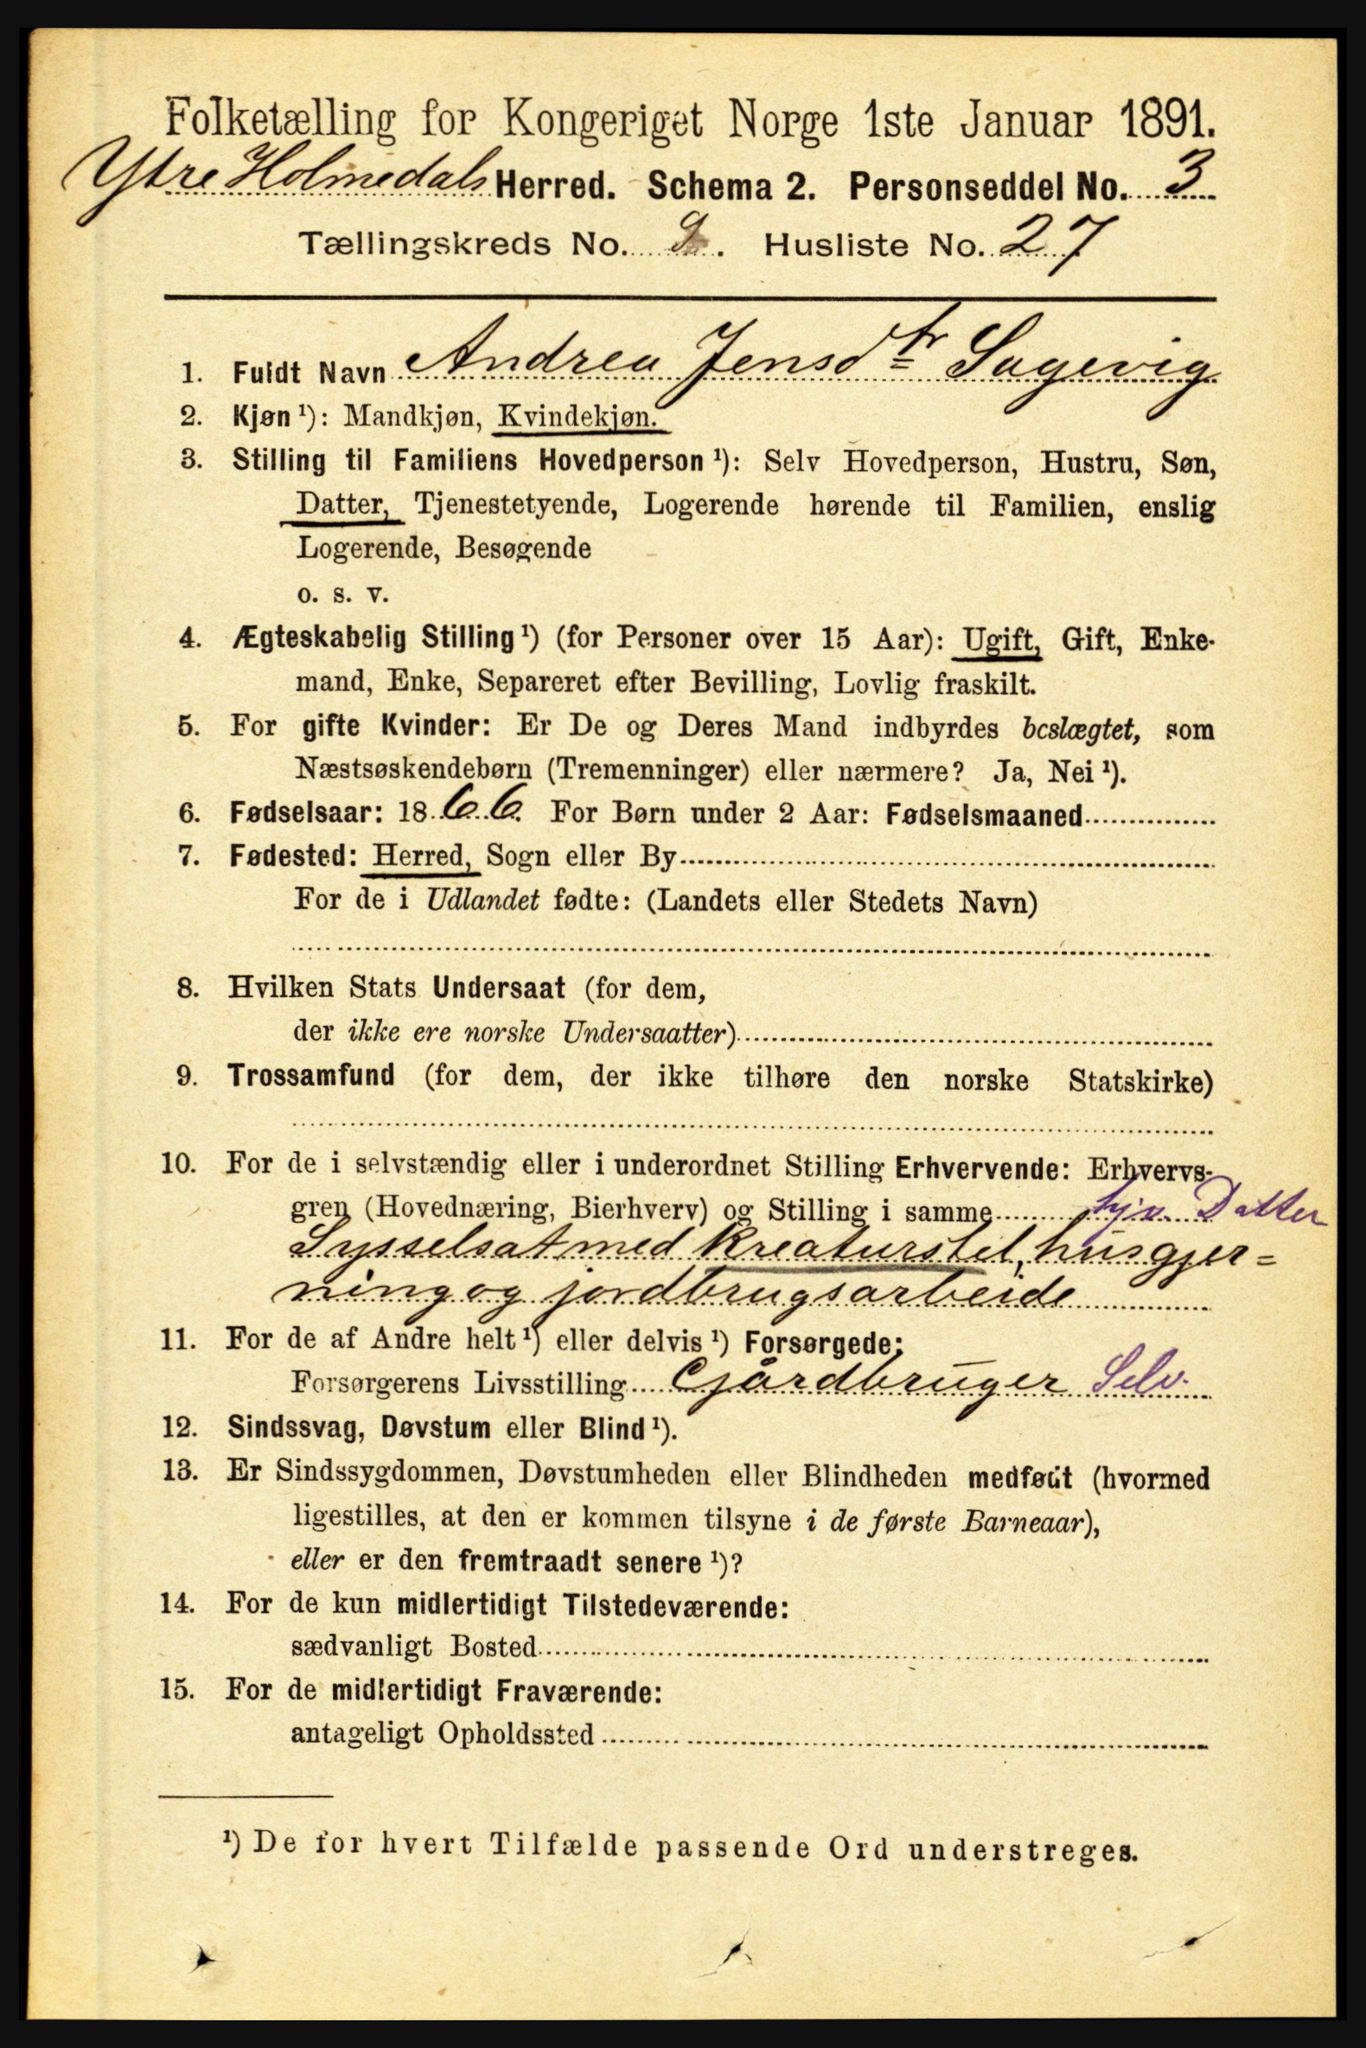 Folketælling for Kongeriget Norge 1ste Januar 1891.
Ytre Holmedals Herred. Schema 2. Personseddel No. 3
Tællingskreds No. 9. Husliste No. 27
1. Fuldt Navn Andrea Jensdtr Sagevig
2. Kjøn ¹): Mandkjøn, Kvindekjøn.
3. Stilling til Familiens Hovedperson ¹): Selv Hovedperson, Hustru, Søn,
Datter, Tjenestetyende, Logerende hørende til Familien, enslig
Logerende, Besøgende
o. s. v.
4. Ægteskabelig Stilling ¹) (for Personer over 15 Aar): Ugift, Gift, Enke-
mand, Enke, Separeret efter Bevilling, Lovlig fraskilt.
5. For gifte Kvinder: Er De og Deres Mand indbyrdes beslægtet, som
Næstsøskendebørn (Tremenninger) eller nærmere? Ja, Nei ¹).
6. Fødselsaar: 1866. For Børn under 2 Aar: Fødselsmaaned
7. Fødested: Herred, Sogn eller By
For de i Udlandet fødte: (Landets eller Stedets Navn)
8. Hvilken Stats Undersaat (for dem,
der ikke ere norske Undersaatter)
9. Trossamfund (for dem, der ikke tilhøre den norske Statskirke)
10. For de i selvstændig eller i underordnet Stilling Erhvervende: Erhvervs-
gren (Hovednæring, Bierhverv) og Stilling i samme hjv. Datter
Sysselsat med kreaturstel, husgjer=
ning og jordbrugsarbeide
11. For de af Andre helt ¹) eller delvis ¹) Forsørgede:
Forsørgerens Livsstilling Gårdbruger Selv.
12. Sindssvag, Døvstum eller Blind ¹).
13. Er Sindssygdommen, Døvstumheden eller Blindheden medfødt (hvormed
ligestilles, at den er kommen tilsyne i de første Barneaar),
eller er den fremtraadt senere ¹)?
14. For de kun midlertidigt Tilstedeværende:
sædvanligt Bosted
15. For de midlertidigt Fraværende:
antageligt Opholdssted
¹) De for hvert Tilfælde passende Ord understreges.